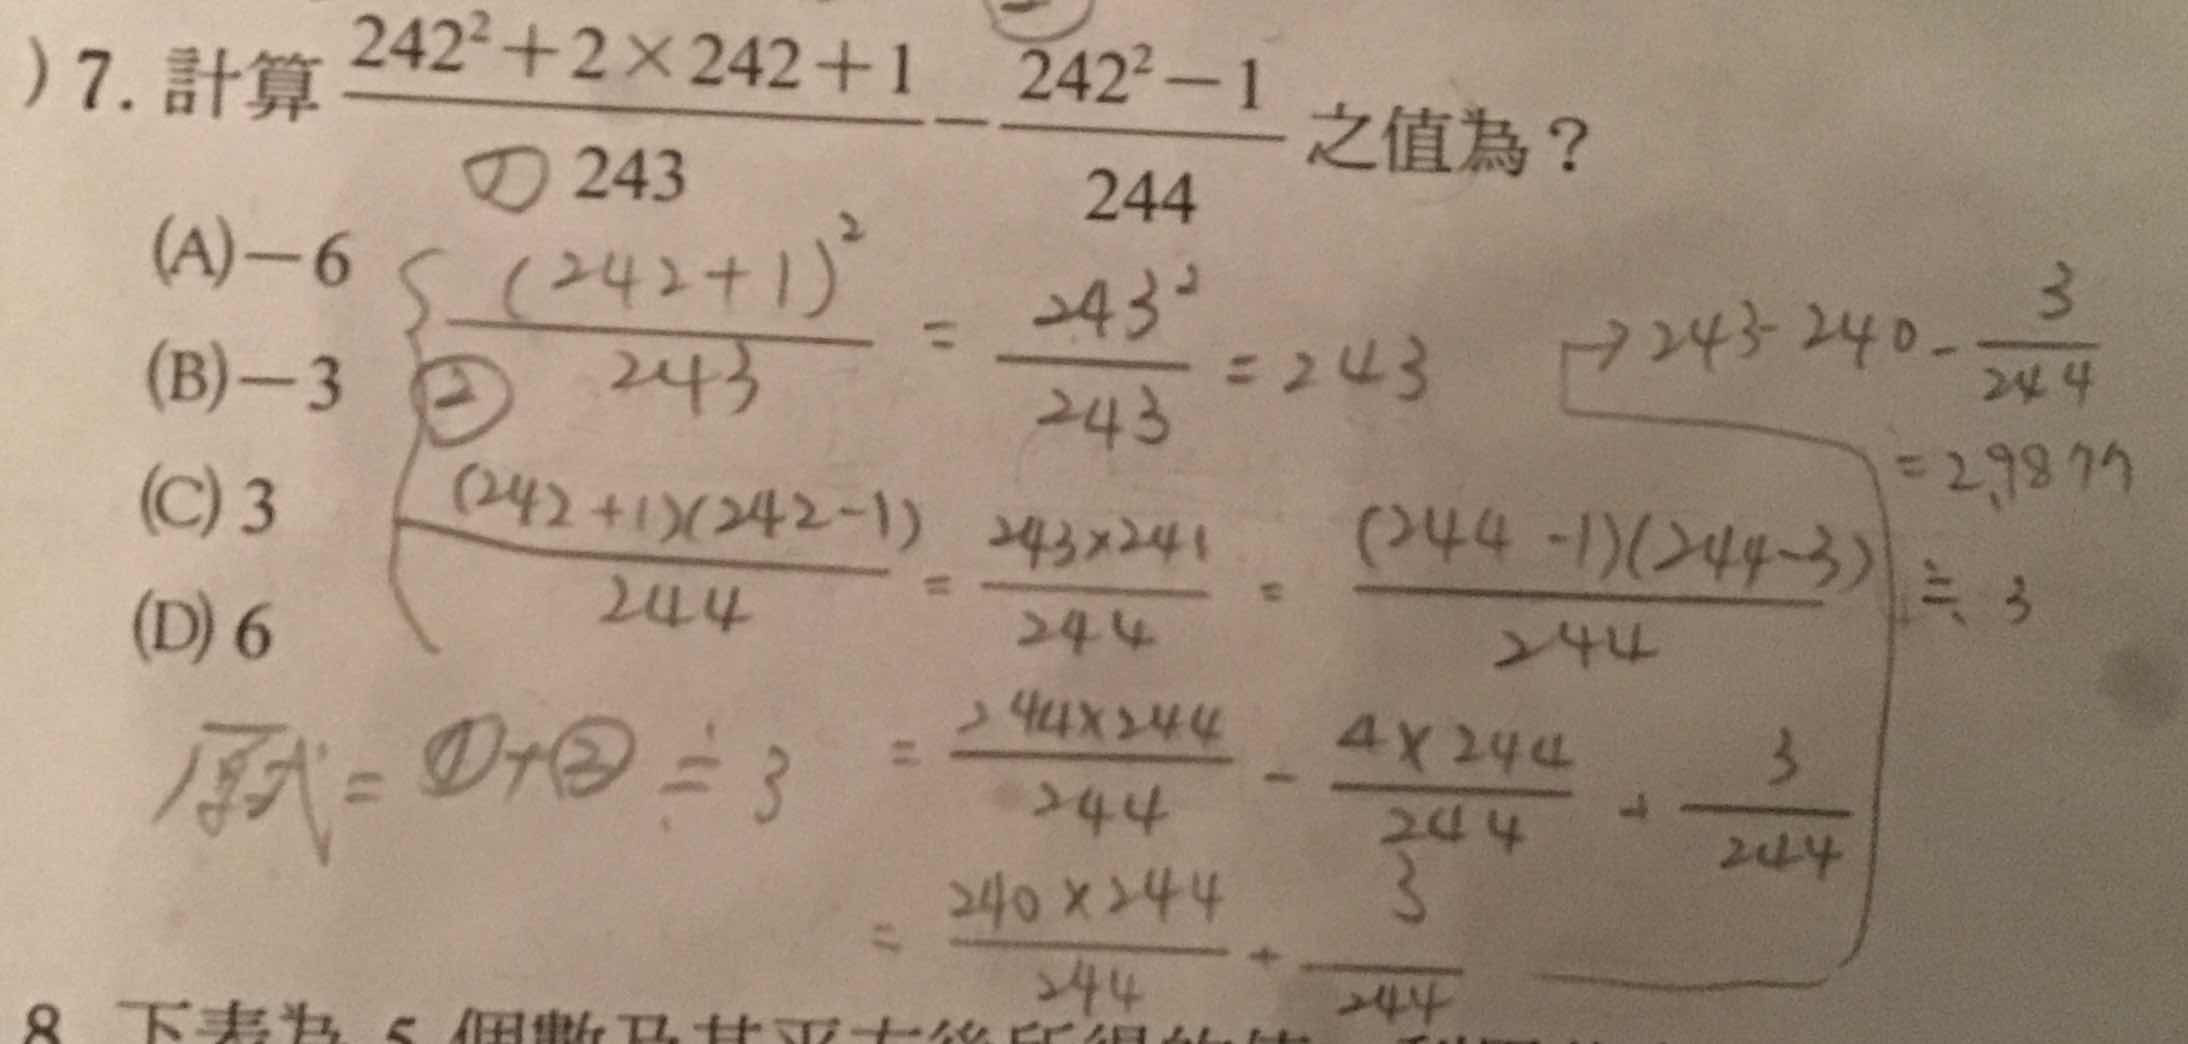 ) 7. 計算 \frac{242²+2×242+1}{243} − \frac{242²−1}{244} 之值為？
①
(A)−6
(B)−3
(C) 3
(D) 6
\frac{(242+1)²}{243} = \frac{243²}{243} = 243
②
\frac{(242+1)(242-1)}{244} = \frac{243×241}{244} = \frac{(244-1)(244-3)}{244}
= \frac{244×244}{244} - \frac{4×244}{244} + \frac{3}{244}
= \frac{240×244}{244} + \frac{3}{244}
→ 243-240-\frac{3}{244}
= 2.9877
≒ 3
原式 = ①+② ≒ 3
8. 下表為 5 個數及其平方後所得的值